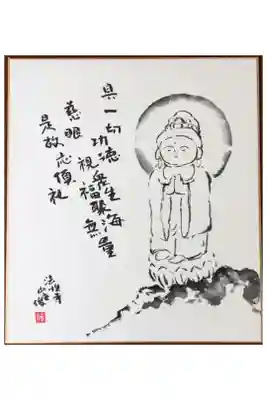 具一切功徳
慈眼視衆生
福聚海無量
是故応頂礼
法性寺